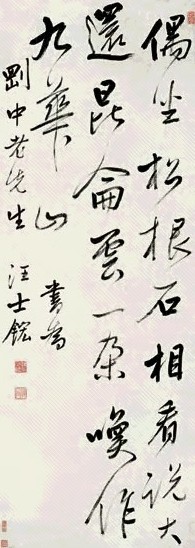 偶坐松根石相看说大
還昆侖雲一朵喚作
九華山 書為
劉中老先生 汪士鋐